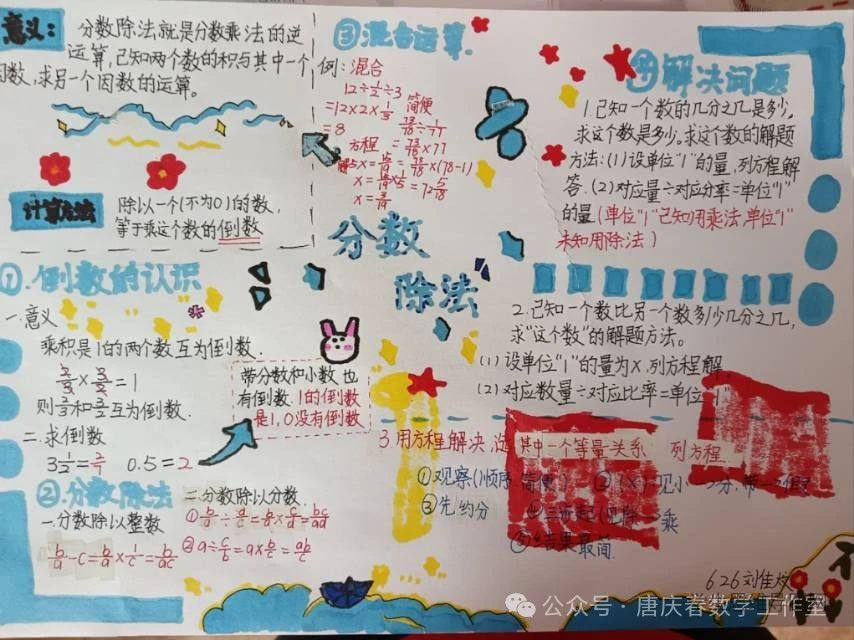 意义：
分数除法就是分数乘法的逆
运算，已知两个数的积与其中一个
因数，求另一个因数的运算。
计算方法
除以一个(不为0)的数，
等于乘这个数的倒数
①.倒数的认识
一.意义
乘积是1的两个数互为倒数.
=1
互为倒数.
二.求倒数
0.5=2
带分数和小数也
有倒数.1的倒数
是1,0没有倒数
②.分数除法
一.分数除以整数
b/a÷c=b/a×1/c=b/ac
二.分数除以分数.
②a÷c/b=a×b/c=ab/c
③混合运算.
例：混合
12÷1/2÷3
=12×2×1/3
=8
简便
方程
分数
除法
④解决问题
1.已知一个数的几分之几是多少，
求这个数是多少。求这个数的解题
方法：(1)设单位"1"的量，列方程解
答.(2)对应量÷对应分率=单位"1"
的量(单位"1"已知用乘法,单位"1"
未知用除法)
2.已知一个数比另一个数多少几分之几，
求"这个数"的解题方法。
(1)设单位"1"的量为x,列方程解.
(2)对应数量÷对应比率=单位"1"
3.用方程解决,选其中一个等量关系 列方程
①观察(顺序 简便)
③先约分
结果最简
626
公众号·唐庆春数学工作室